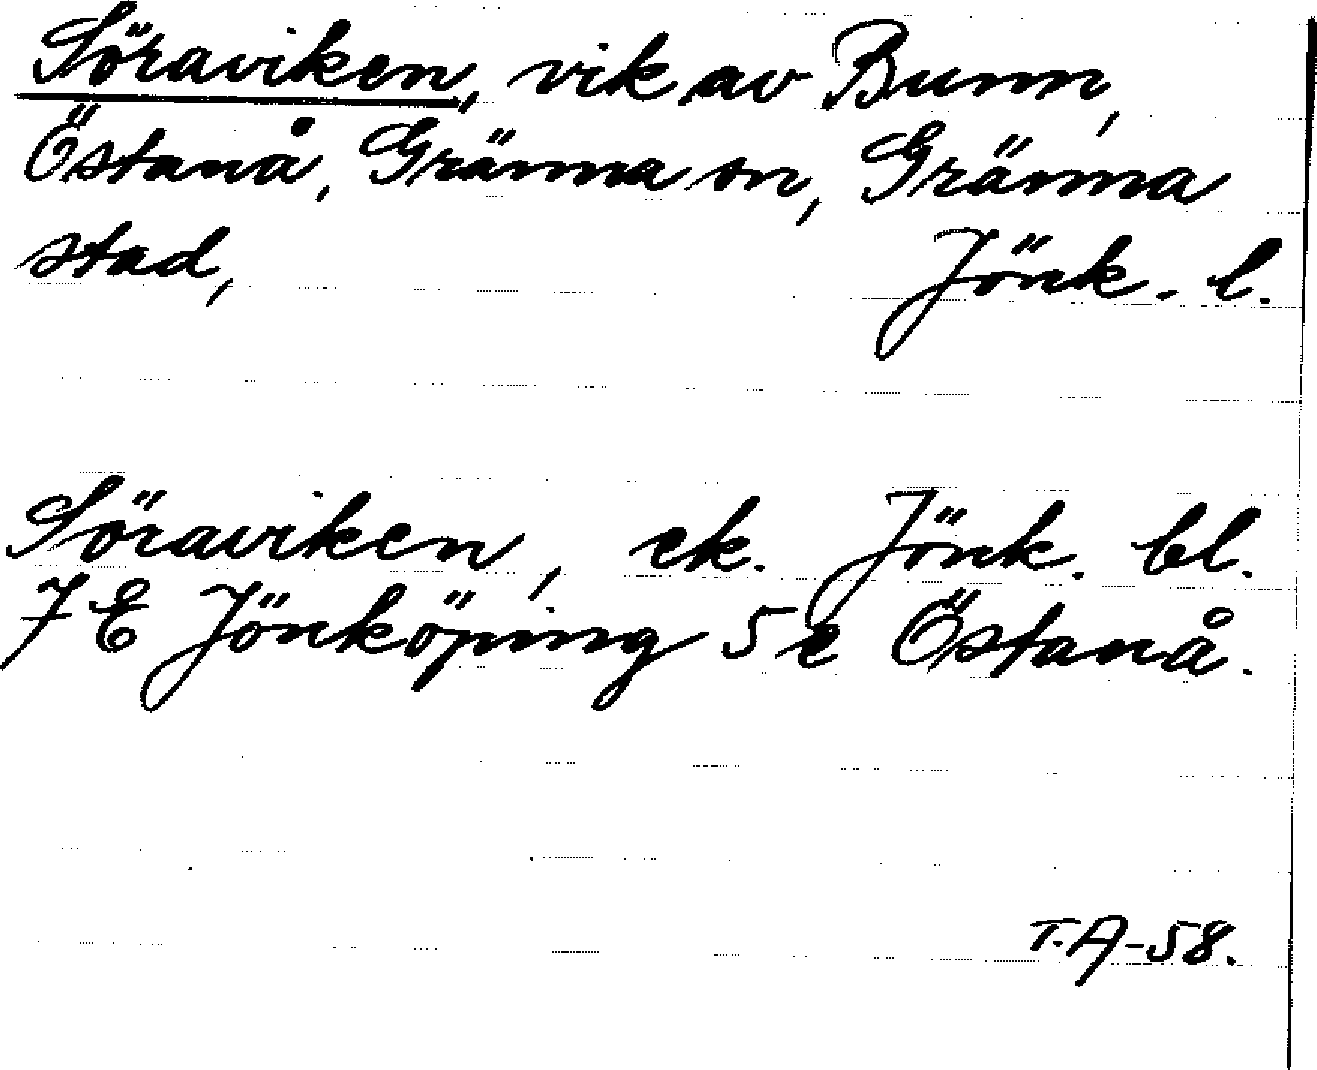 Söraviken, vik av Bunn,
Östanå, Gränna sn, Gränna
stad, Jönk. l.
Söraviken, ek. Jönk. bl.
7E Jönköping 5 e Östanå.
T.A-58.